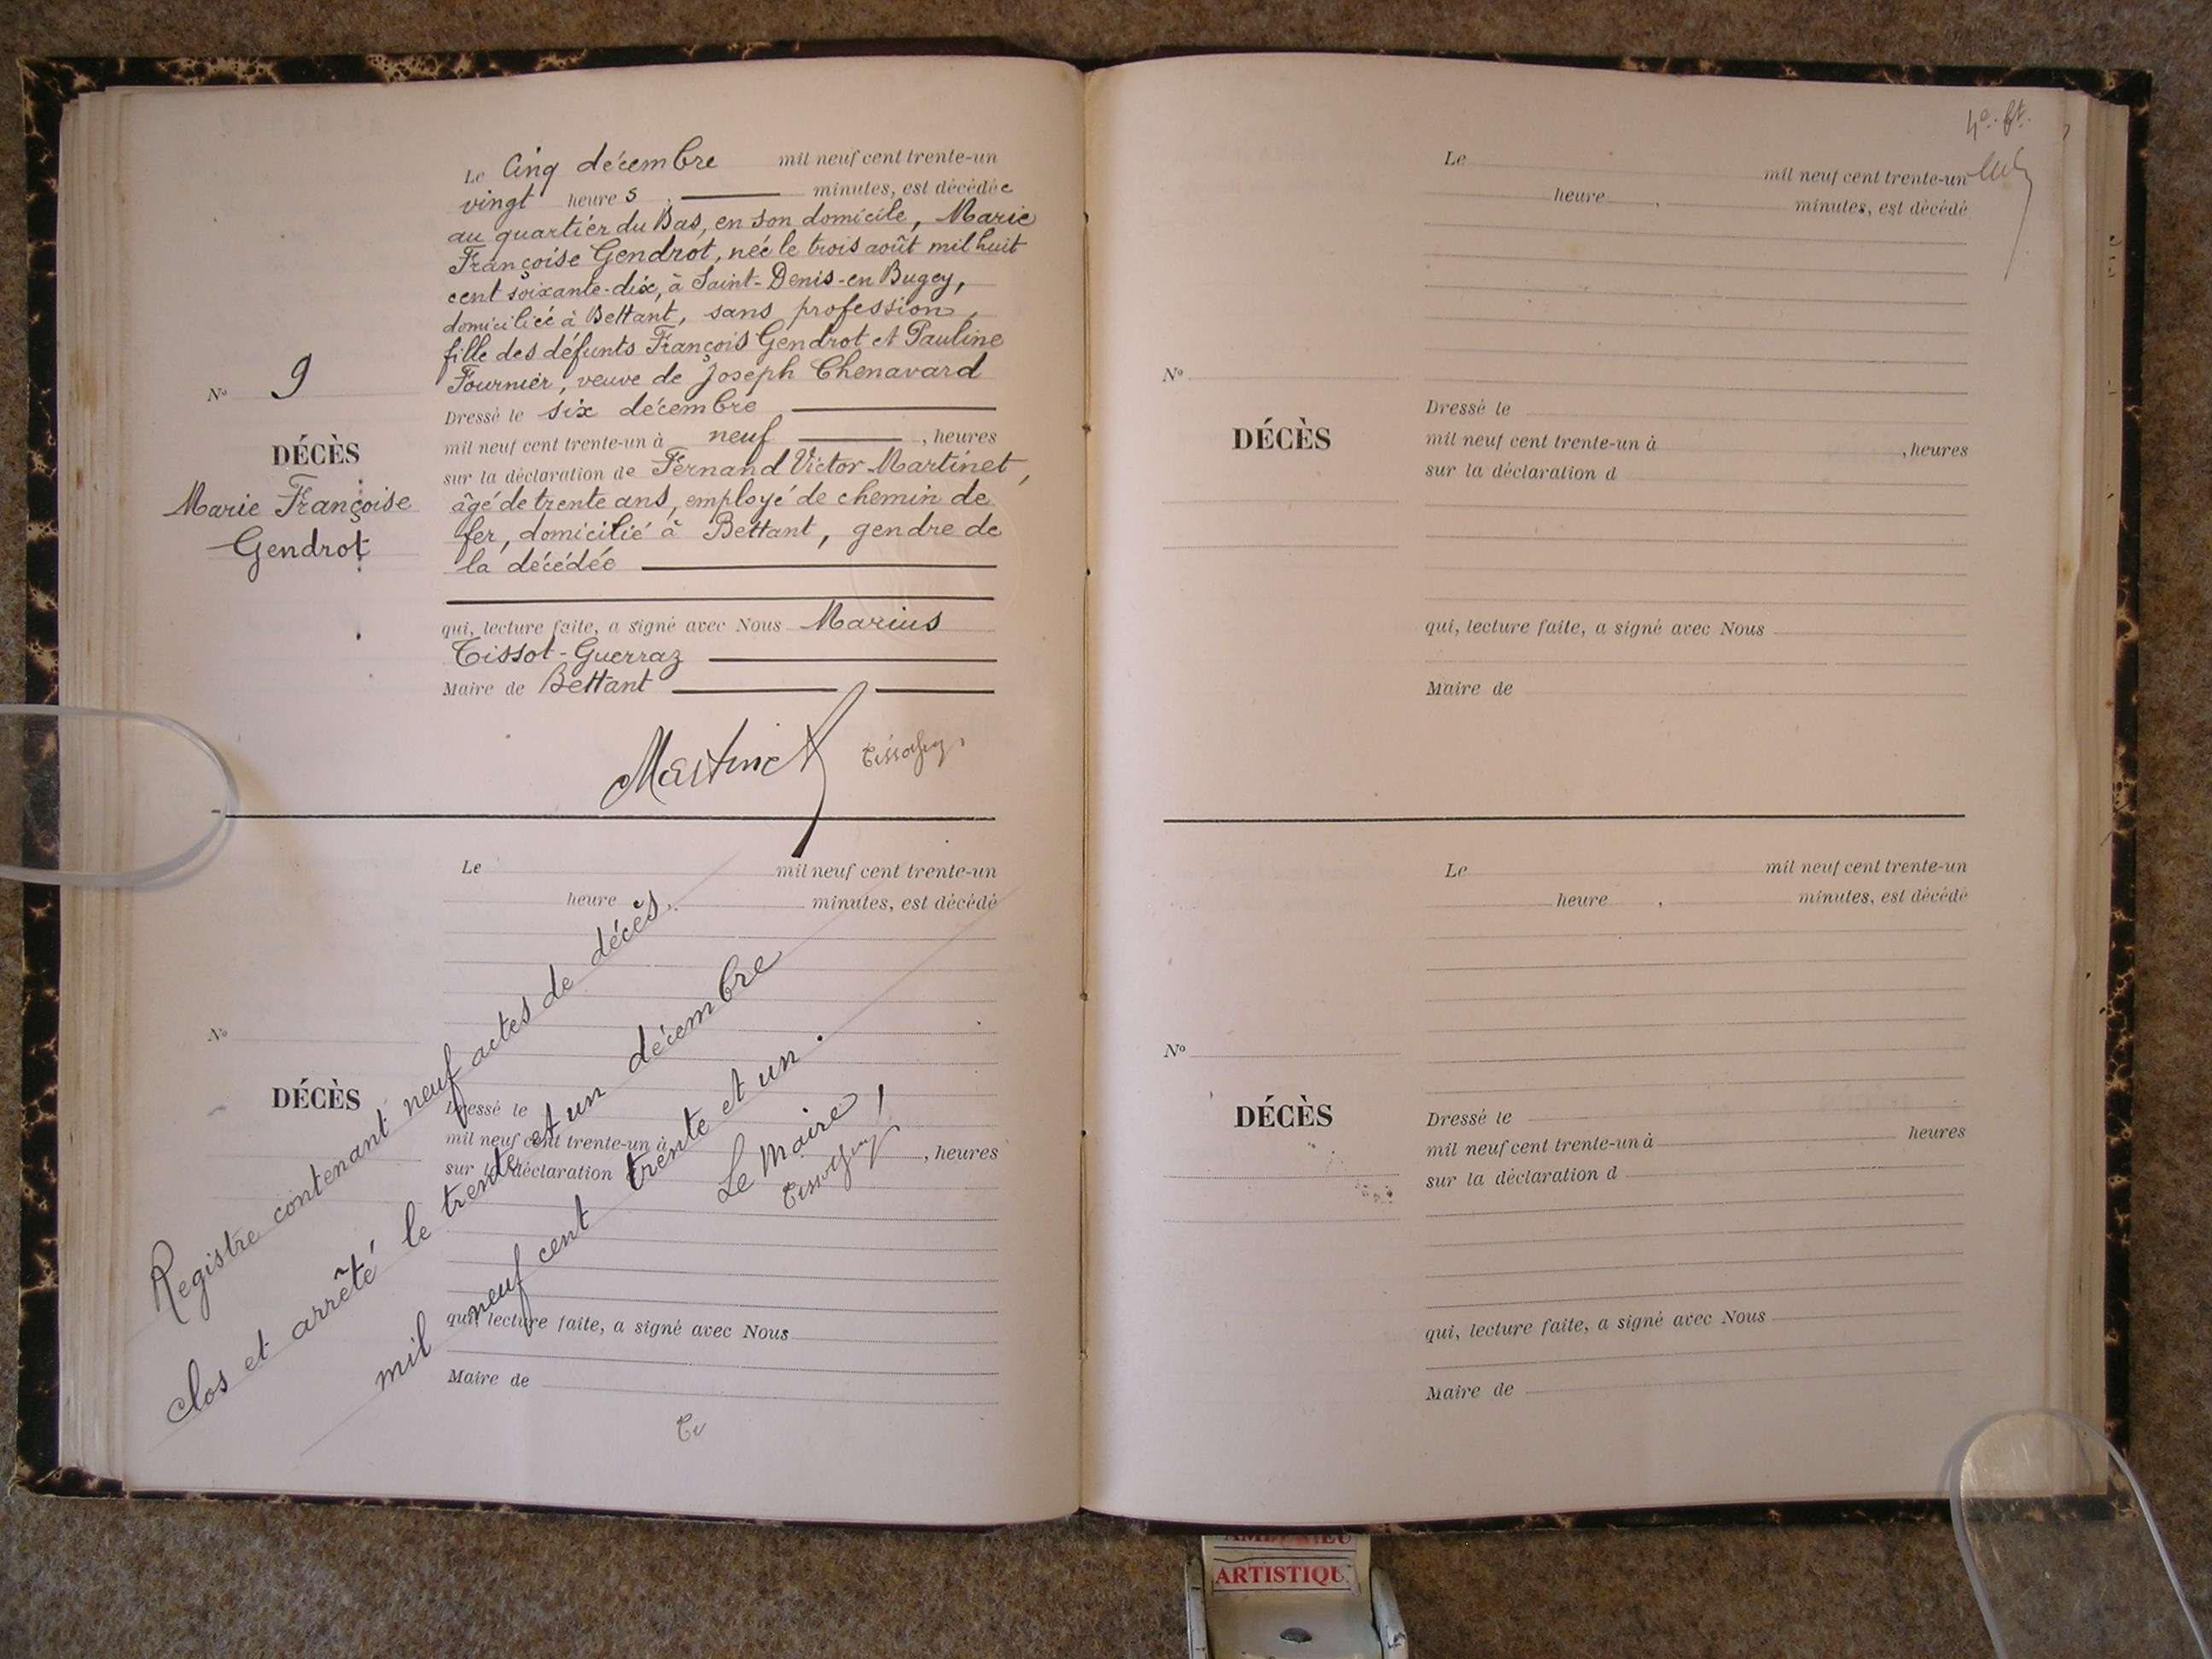 Le Cinq décembre mil neuf cent trente-un
vingt heures, minutes, est décédée
au quartier du Bas, en son domicile, Marie
Françoise Gendrot, née le trois août mil huit
cent soixante-dix, à Saint-Denis-en Bugey,
domiciliée à Bettant, sans profession,
fille des défunts François Gendrot et Pauline
Fournier, veuve de Joseph Chenavard
Nº 9
Dressé le six décembre
mil neuf cent trente-un à neuf, heures
DÉCÈS
sur la déclaration de Fernand Victor Martinet,
Marie Françoise
âgé de trente ans, employé de chemin de
Gendrot
fer, domicilié à Bettant, gendre de
la décédée
qui, lecture faite, a signé avec Nous Marius
Tissot-Guerraz
Maire de Bettant
Martinet
Le mil neuf cent trente-un
heure , minutes, est décédé
Nº
DÉCÈS
Dressé le
mil neuf cent trente-un à , heures
sur la déclaration d
qui, lecture faite, a signé avec Nous
Maire de
Registre contenant neuf actes de décès
clos et arrêté le trente et un décembre
mil neuf cent trente et un.
Le Maire,
4e. ft.
Le mil neuf cent trente-un
heure , minutes, est décédé
Nº
DÉCÈS
Dressé le
mil neuf cent trente-un à , heures
sur la déclaration d
qui, lecture faite, a signé avec Nous
Maire de
Le mil neuf cent trente-un
heure , minutes, est décédé
Nº
DÉCÈS
Dressé le
mil neuf cent trente-un à heures
sur la déclaration d
qui, lecture faite, a signé avec Nous
Maire de
ARTISTIQU